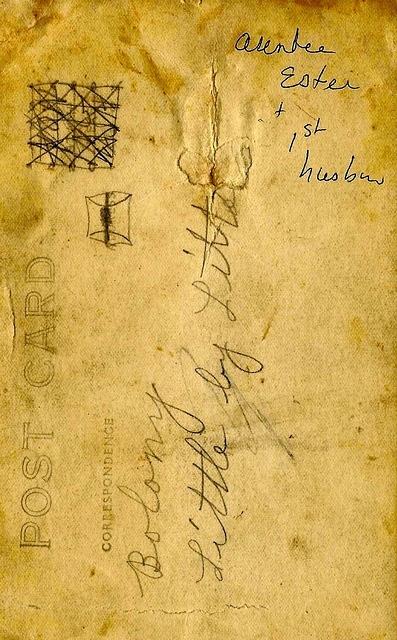 Ester
+
1st
POST CARD
CORRESPONDENCE
Bolony
Little by Little